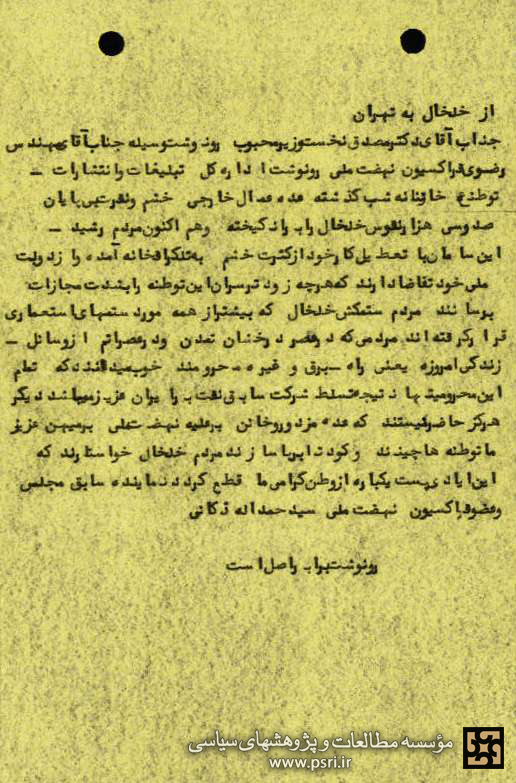 از خلخال به تهران
جناب آقای دکتر مصدق نخست وزیر محبوب رونوشت وسیله جناب آقای مهندس
رضوی فراکسیون نهضت ملی رونوشت اداره کل تبلیغات وانتشارات ـ
توطئه خائنانه شب گذشته عده عمال خارجی خشم ونفرت بی پایان
صدوسی هزار نفوس خلخال را برانگیخته وهم اکنون مردم رشید ـ
این سامان با تعطیل کار خود از کثرت خشم به تلگرافخانه آمده و از دولت
ملی خود تقاضا دارند که هرچه زودتر سران این توطئه را بشدت مجازات
برسانند مردم ستمکش خلخال که بیشتر از همه مورد ستمهای استعماری
قرار گرفته اند مردمی که در عصر درخشان تمدن ودر عصر اتم از وسائل ـ
زندگی امروزه یعنی راه ـ برق و غیره محرومند خوب میدانند که تمام
این محرومیتها نتیجه تسلط شرکت سابق نفت بر ایران عزیز میباشد دیگر
هرگز حاضر نیستند که عده مزدور و خائن بر علیه نهضت ملی برمیهن عزیز
ما توطئه ها چیند و کودتا برپا سازند مردم خلخال خواستارند که
این ایادی پست یکباره از وطن گرامی ما قطع گردد نماینده سابق مجلس
وعضو فراکسیون نهضت ملی سید حمداله ذکائی
رونوشت برابر اصل است
مؤسسه مطالعات و پژوهشهای سیاسی
www.psri.ir